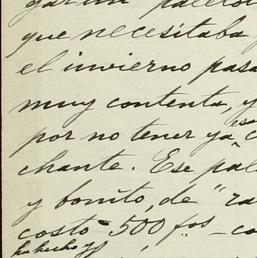 gar un paletot
que necesitaba
el invierno pasa
muy contenta, y
por no tener ya c
chante. Ese pal
y bonito, de "ra
costó 500 fos — co
ha hecho